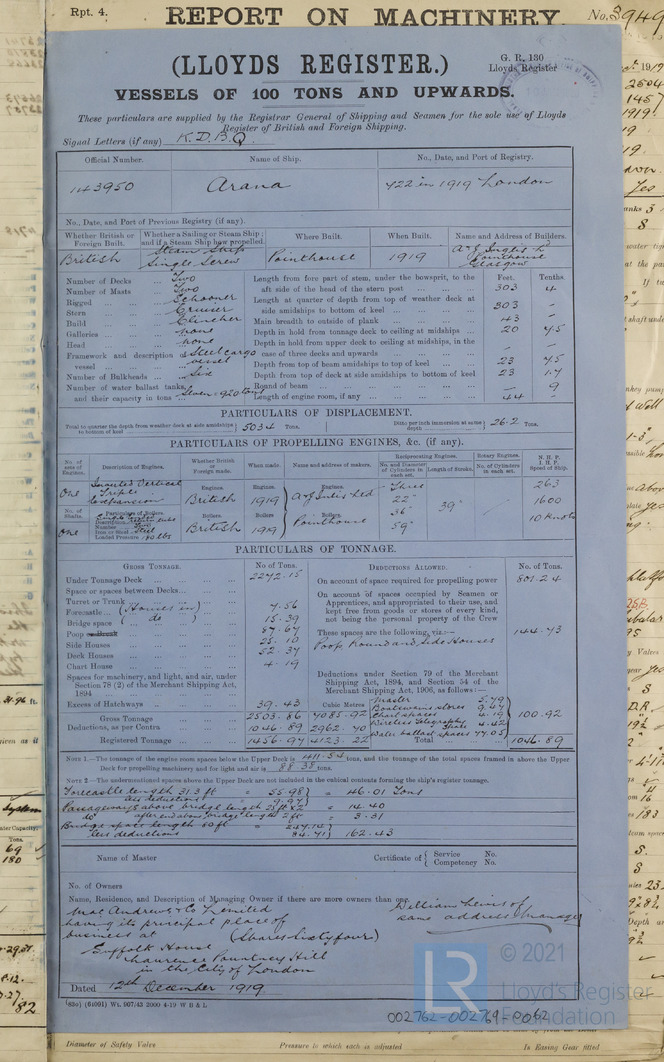 Rpt. 4.
REPORT ON MACHINERY.
No. 3949
(LLOYDS REGISTER.)
G. R. 130
Lloyds Register
VESSELS OF 100 TONS AND UPWARDS.
These particulars are supplied by the Registrar General of Shipping and Seamen for the sole use of Lloyds
Register of British and Foreign Shipping.
Signal Letters (if any) K.D.B.Q.
Official Number. Name of Ship. No., Date, and Port of Registry.
143950 Arana 422 in 1919 London
No., Date, and Port of Previous Registry (if any).
Whether British or Foreign Built. Whether a Sailing or Steam Ship; and if a Steam Ship how propelled. Where Built. When Built. Name and Address of Builders.
British Steam Ship Single Screw Pointhouse 1919 A & J Inglis Ld Pointhouse Glasgow
Number of Decks ... Two
Number of Masts ... Two
Rigged ... Schooner
Stern ... Cruiser
Build ... Clincher
Galleries ... none
Head ... none
Framework and description of vessel ... Steel cargo vessel
Number of Bulkheads ... Six
Number of water ballast tanks, and their capacity in tons ... Seven 920 tons
Feet. Tenths.
Length from fore part of stem, under the bowsprit, to the aft side of the head of the stern post 303 4
Length at quarter of depth from top of weather deck at side amidships to bottom of keel 303 -
Main breadth to outside of plank 43 -
Depth in hold from tonnage deck to ceiling at midships 20 45
Depth in hold from upper deck to ceiling at midships, in the case of three decks and upwards - -
Depth from top of beam amidships to top of keel 23 45
Depth from top of deck at side amidships to bottom of keel 23 17
Round of beam - 9
Length of engine room, if any 44 -
PARTICULARS OF DISPLACEMENT.
Total to quarter the depth from weather deck at side amidships to bottom of keel 5034 Tons. Ditto per inch immersion at same depth 26.2 Tons.
PARTICULARS OF PROPELLING ENGINES, &c. (if any).
No. of sets of Engines. Description of Engines. Whether British or Foreign made. When made. Name and address of makers. Reciprocating Engines. Rotary Engines. N.H.P. I.H.P. Speed of Ship.
No. and Diameter of Cylinders in each set. Length of Stroke. No. of Cylinders in each set.
One Inverted Vertical Triple Expansion Engines. British Engines. 1919 Engines. A & J Inglis Ltd Three 22" 36" 59" 39" 263 1600 10 Knots
No. of Shafts. Particulars of Boilers.
One Number Iron or Steel Steel Loaded Pressure 180 lbs Boilers. British Boilers. 1919 Boilers. Pointhouse
PARTICULARS OF TONNAGE.
GROSS TONNAGE. No of Tons. DEDUCTIONS ALLOWED. No. of Tons.
Under Tonnage Deck 2242.15
Space or spaces between Decks
Turret or Trunk
Forecastle (Houses in) 7.56
Bridge space (do) 15.39
Poop or Break 87.67
Side Houses 25.10
Deck Houses 22.37
Chart House 4.19
Spaces for machinery, and light, and air, under Section 78 (2) of the Merchant Shipping Act, 1894
Excess of Hatchways 39.43
Cubic Metres
Gross Tonnage 2503.86 7085.92
Deductions, as per Contra 1046.89 2962.70
Registered Tonnage 1456.97 4123.22
On account of space required for propelling power 801.24
On account of spaces occupied by Seamen or Apprentices, and appropriated to their use, and kept free from goods or stores of every kind, not being the personal property of the Crew
These spaces are the following, viz.:— 144.73
Poop, Round and Side Houses
Deductions under Section 79 of the Merchant Shipping Act, 1894, and Section 54 of the Merchant Shipping Act, 1906, as follows:—
Master 5.79
Boatswains stores 9.47
Chart spaces 4.19
Wireless Telegraphy 4.42
Water ballast spaces 77.05
100.92
Total 1046.89
NOTE 1.—The tonnage of the engine room spaces below the Upper Deck is 411.54 tons, and the tonnage of the total spaces framed in above the Upper
Deck for propelling machinery and for light and air is 88.35 tons.
NOTE 2.—The undermentioned spaces above the Upper Deck are not included in the cubical contents forming the ship's register tonnage.
Forecastle length 31.3 ft = 55.98
less deductions 9.97 = 46.01 Tons
Passageways above bridge length 25 ft x 2 = 14.40
do after end above bridge length 2 ft = 3.31
Bridge space length 80 ft = 247.14
less deductions 84.71 162.43
Name of Master Certificate of Service No. Competency No.
No. of Owners
Name, Residence, and Description of Managing Owner if there are more owners than one.
MacAndrews & Co Limited
having its principal place of
business at (Shares Sixty four)
Suffolk House
Laurence Pountney Hill
in the City of London
William Lewis of
same address, Manager
Dated 12th December 1919
(83o) (64001) Wt. 967/43 2000 4-19 W B & L
LR © 2021
Lloyd's Register
Foundation
002762-002769-0042
Diameter of Safety Valve Pressure to which each is adjusted In Easing Gear fitted